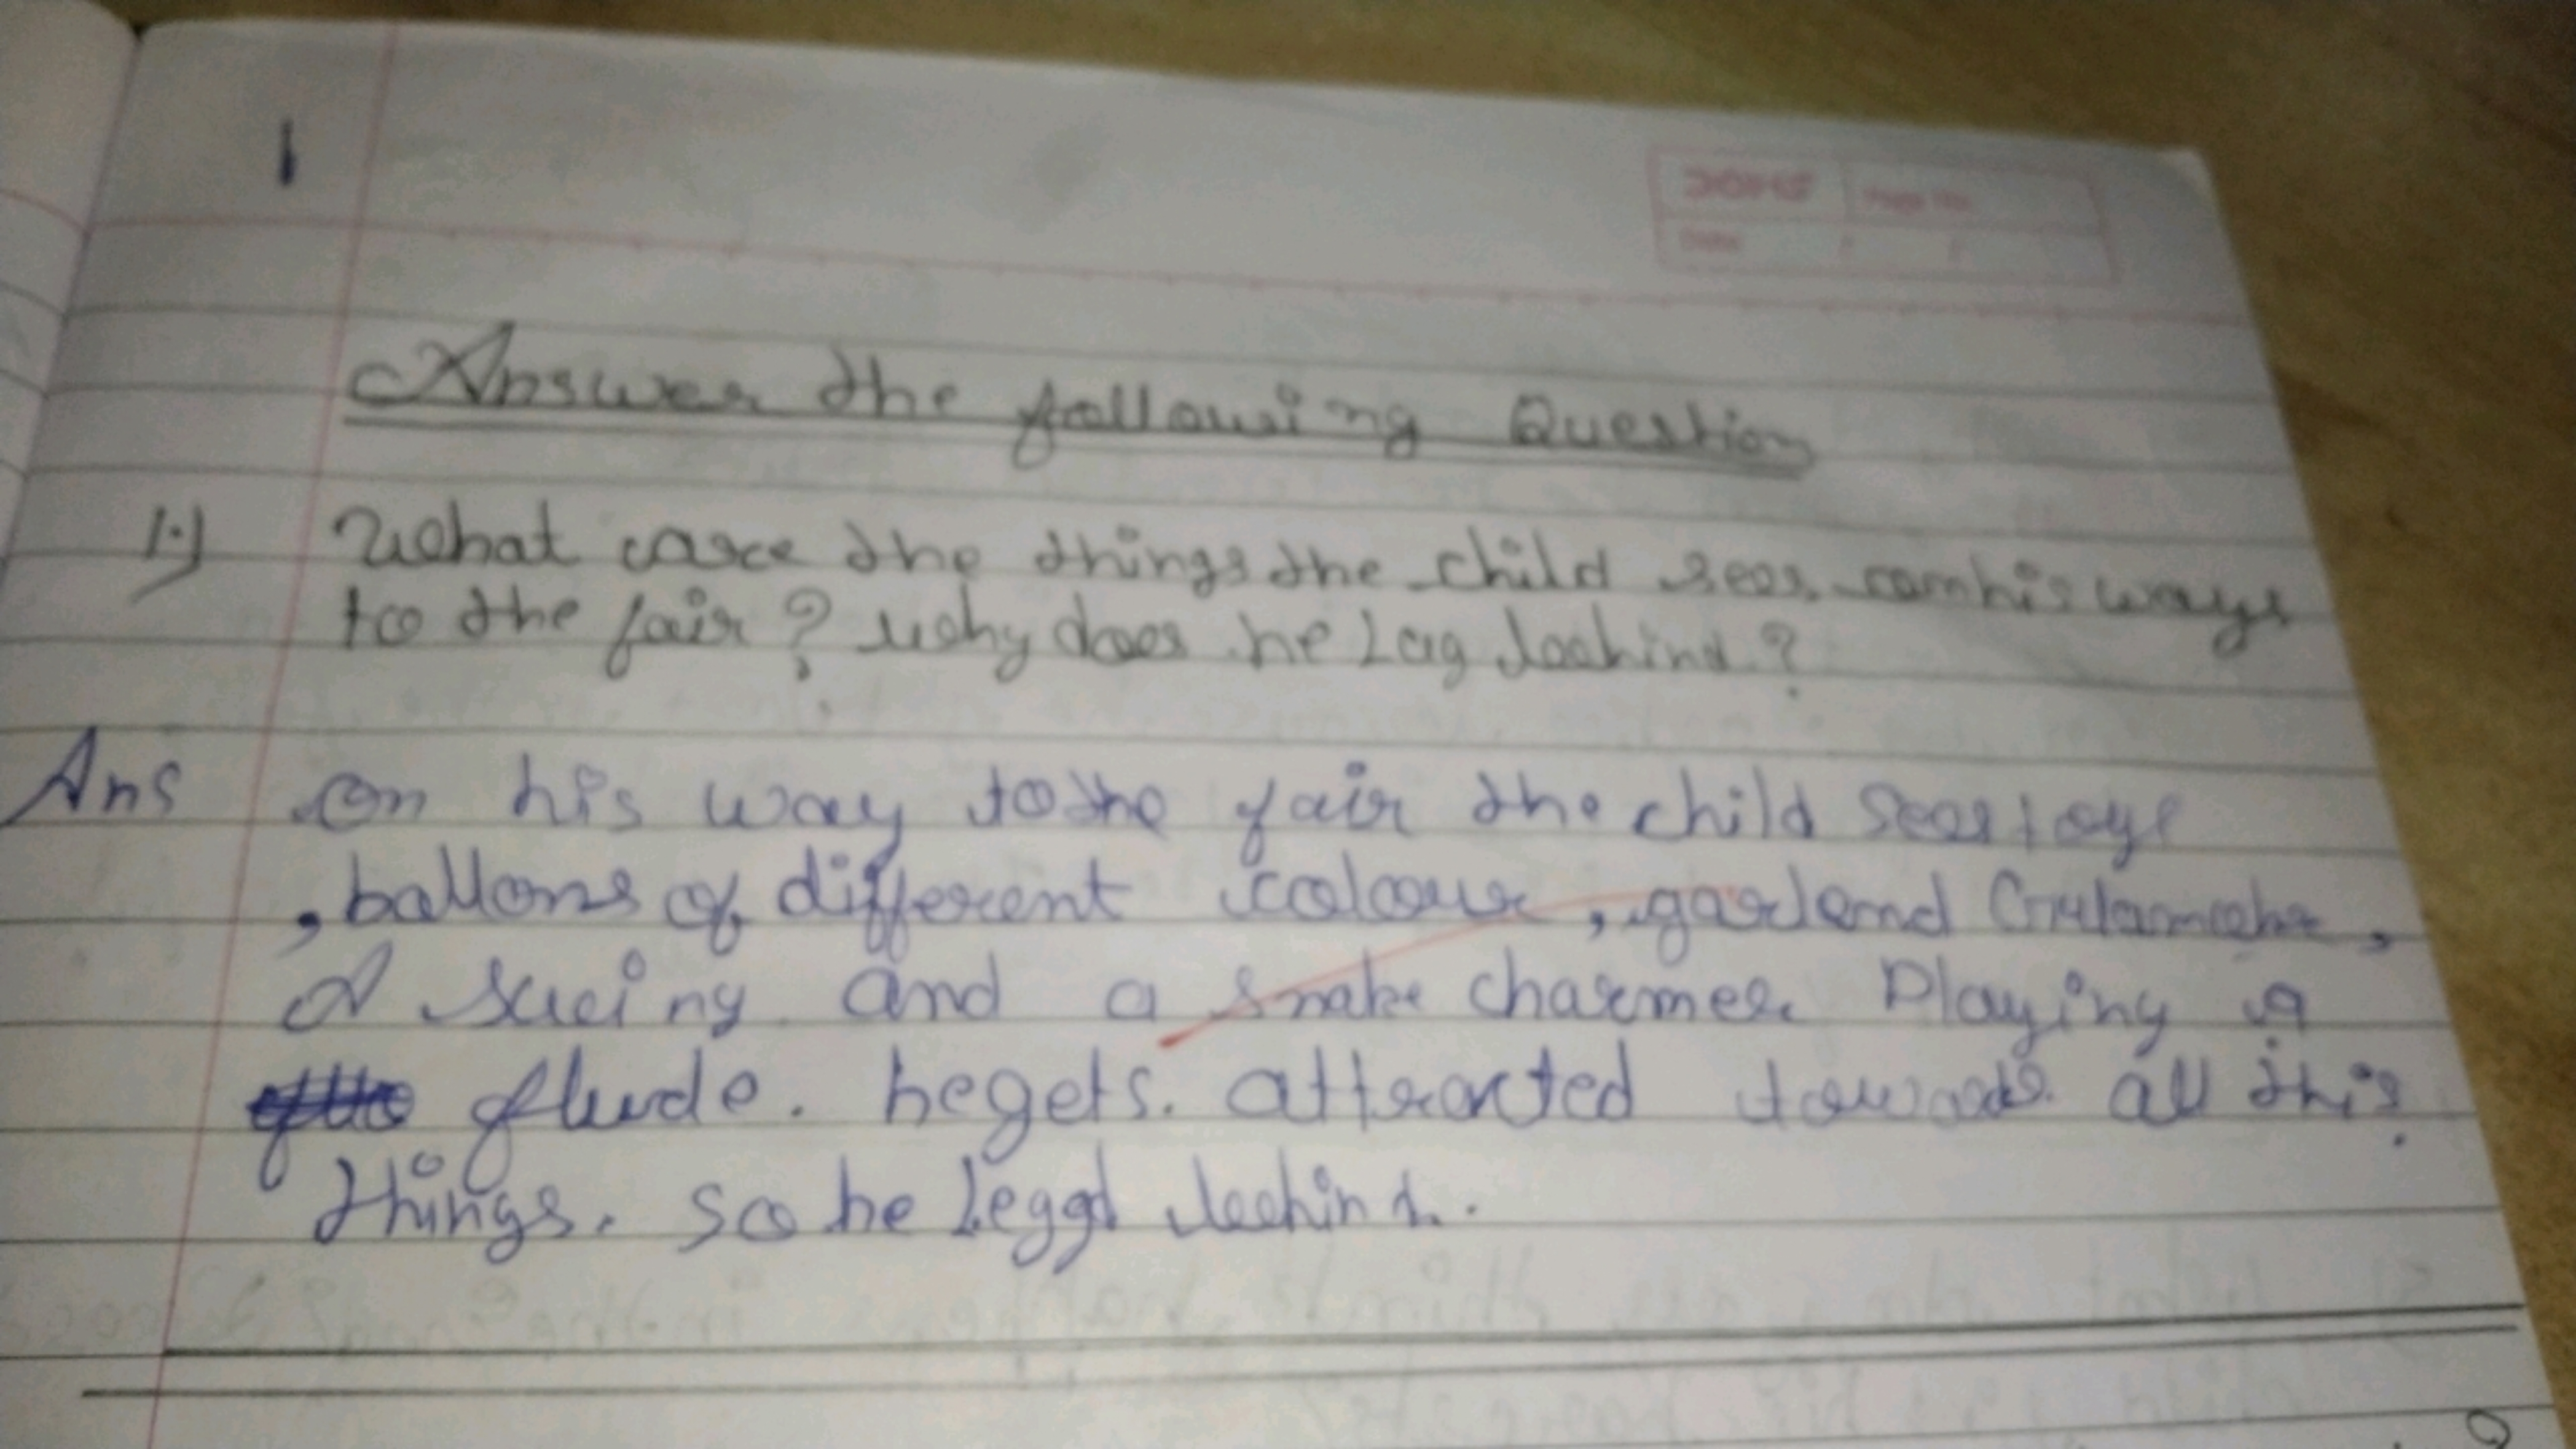 1
Page No.
Date
Answer the following Question
1.) What are the things the child sees on his ways
to the fair ? Why does he Lag behind ?
Ans on his way to the fair the child sees toys
, ballons of different colour, garlend Gulamohr,
A sueing and a snake charmer Playing a
flude. he gets. attracted towards all this
things. so he leggd behind.